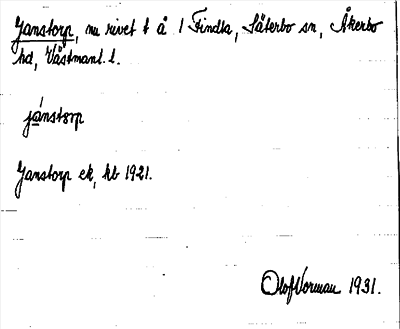 Janstorp, nu rivet t å 1 Findla, Säterbo sn, Åkerbo
hd, Västmanl. l.
jánstɔrp
Janstorp ek, kb 1921.
Olof Vorman 1931.